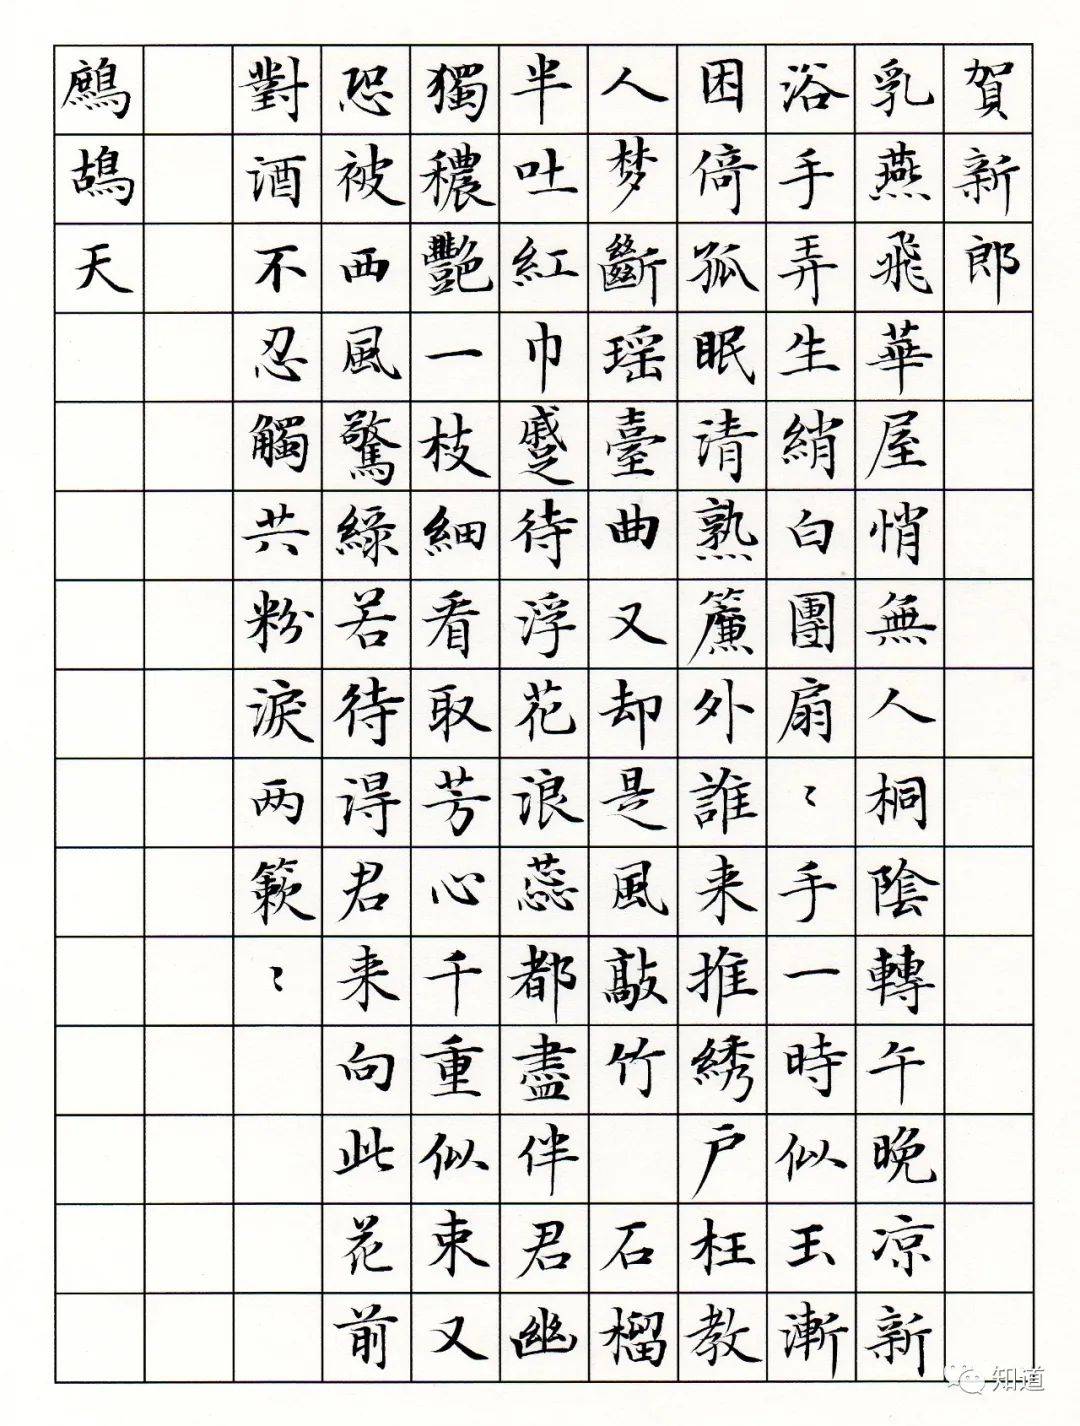 賀新郎
乳燕飛華屋悄無人桐陰轉午晚凉新
浴手弄生綃白團扇〻手一時似玉漸
困倚孤眠清熟簾外誰来推綉户枉教
人梦斷瑶臺曲又却是風敲竹 石榴
半吐紅巾蹙待浮花浪蕊都盡伴君幽
獨穠艷一枝細看取芳心千重似束又
恐被西風驚綠若待得君来向此花前
對酒不忍觸共粉淚两簌〻
鷓鴣天
知道